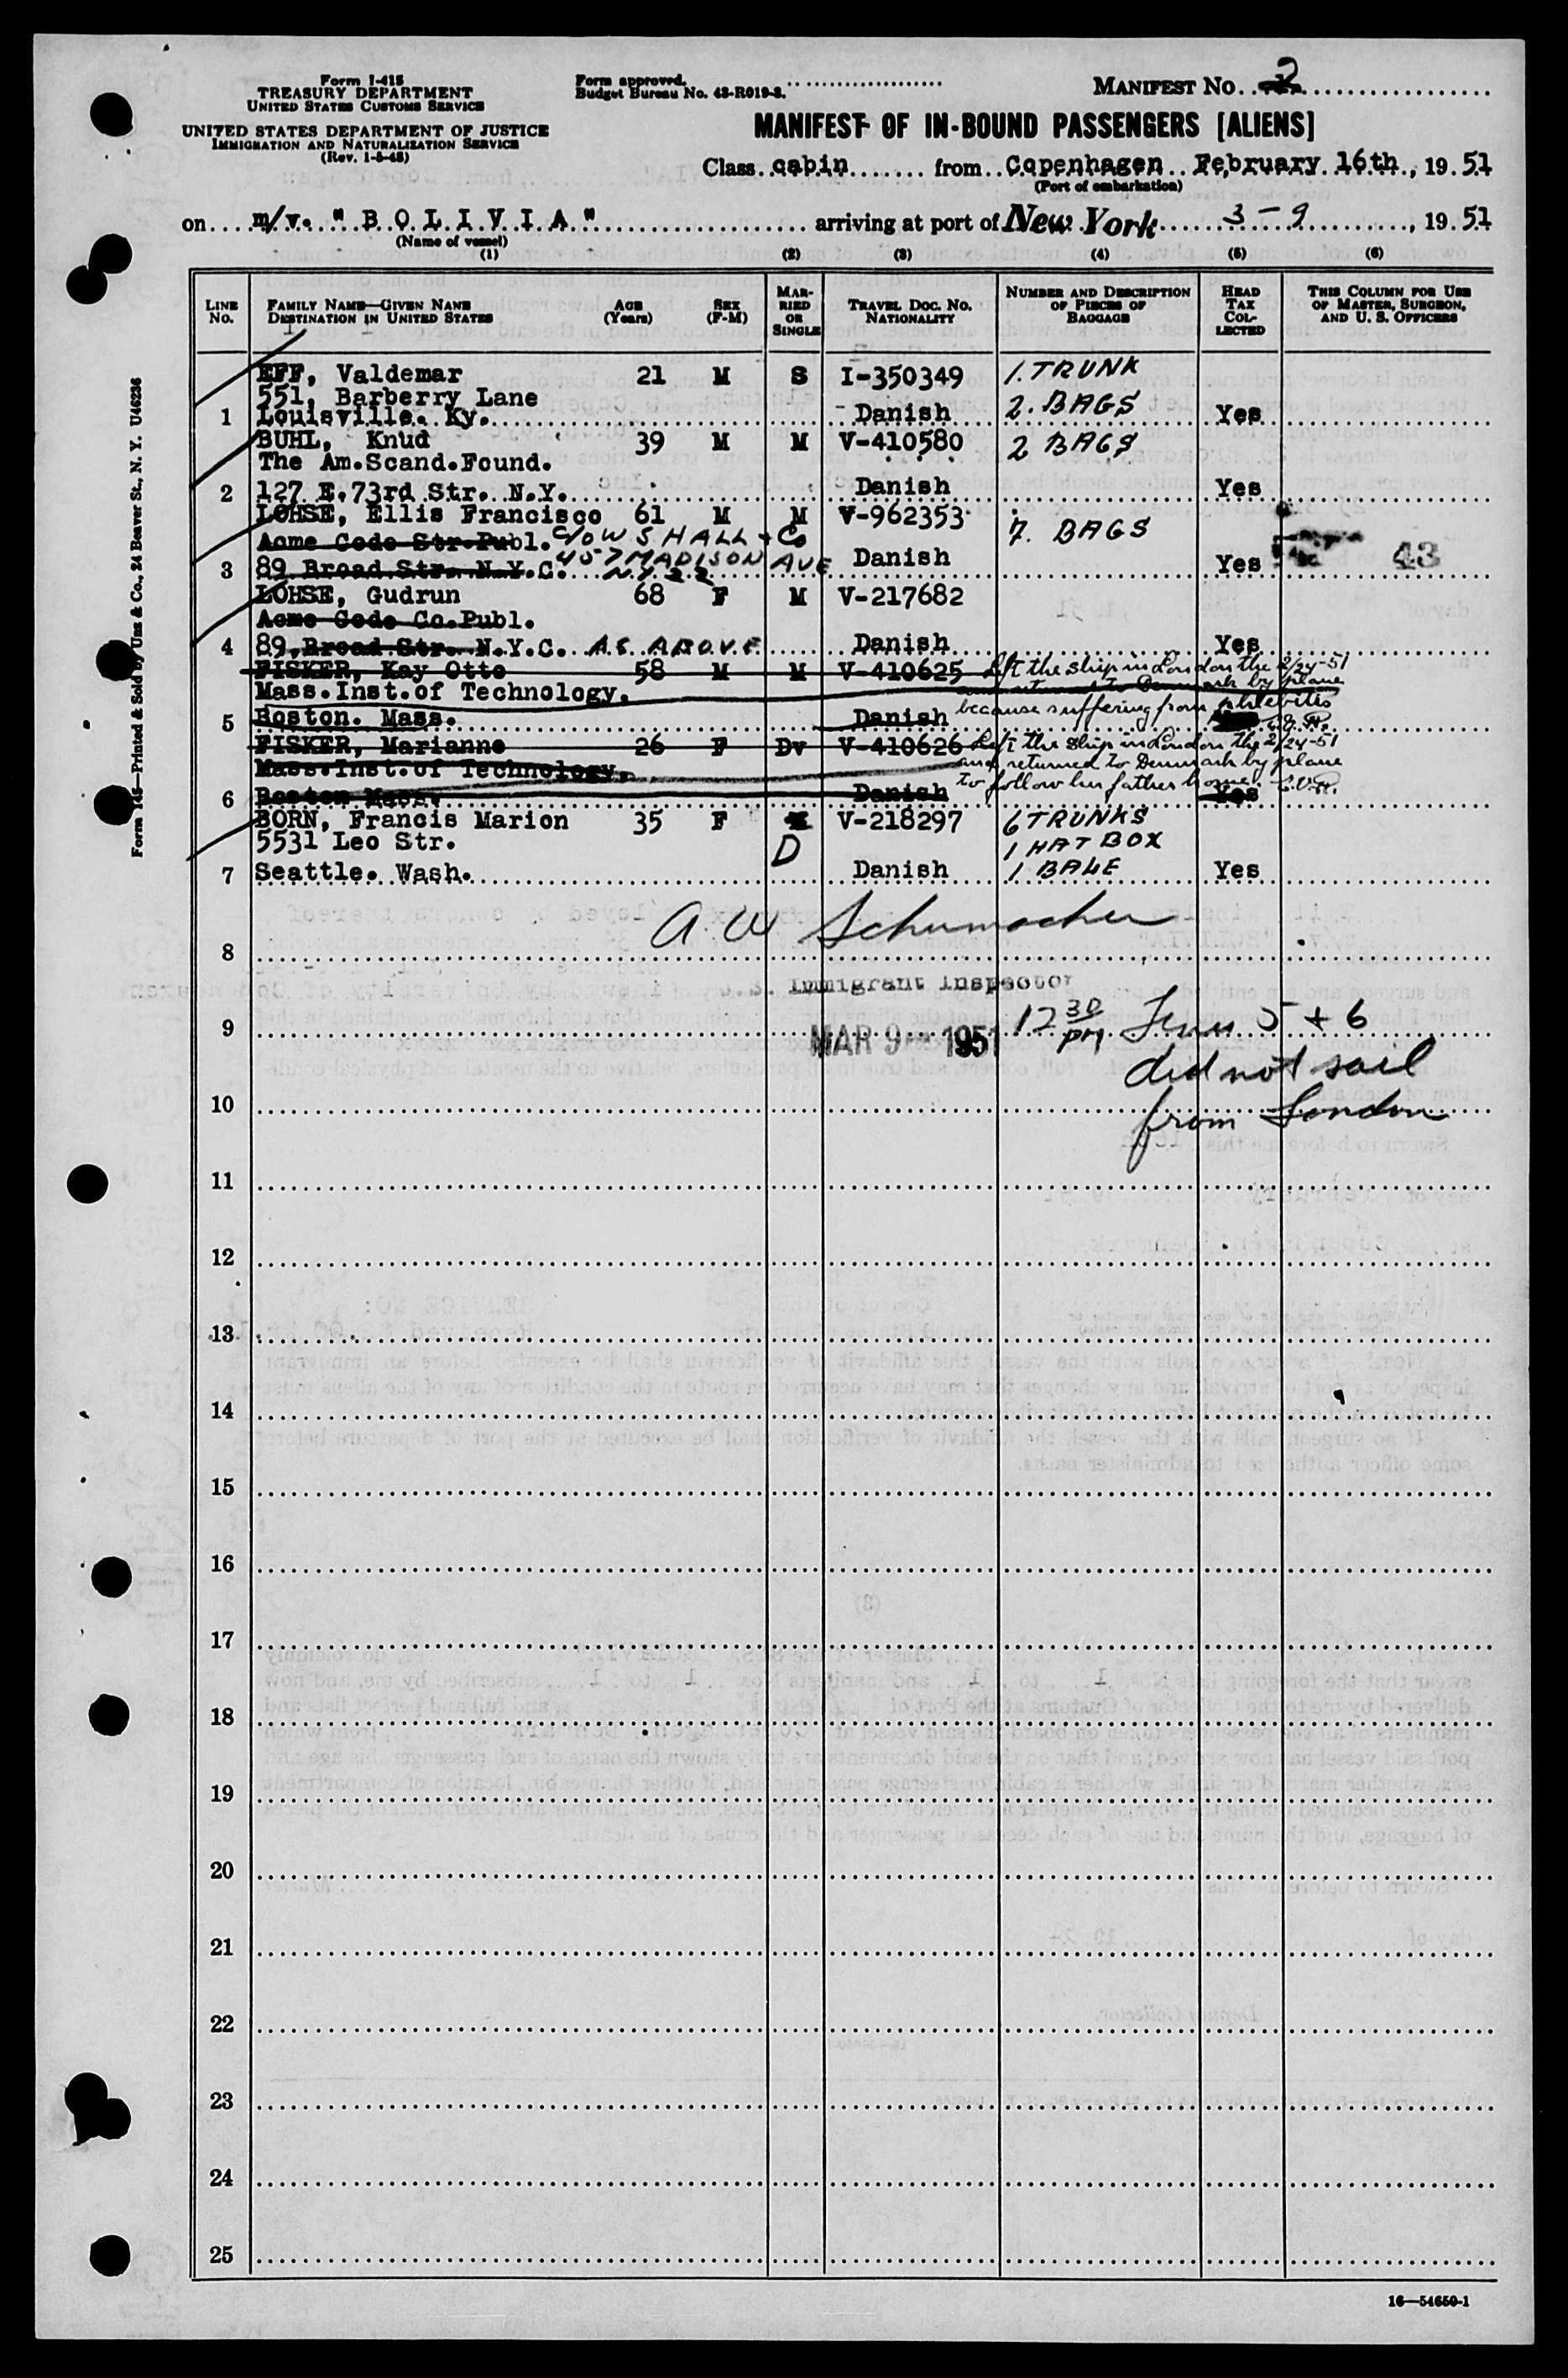 Form I-415
TREASURY DEPARTMENT
UNITED STATES CUSTOMS SERVICE
UNITED STATES DEPARTMENT OF JUSTICE
IMMIGRATION AND NATURALIZATION SERVICE
(Rev. 1-5-48)
Form approved.
Budget Bureau No. 43-R019-3.
MANIFEST NO. 2
MANIFEST OF IN-BOUND PASSENGERS [ALIENS]
Class cabin from Copenhagen February 16th, 1951
(Port of embarkation)
on m/v. "BOLIVIA" arriving at port of New York 3-9, 1951
(Name of vessel)
(1) (2) (3) (4) (5) (6)
LINE NO.
FAMILY NAME—GIVEN NAME
DESTINATION IN UNITED STATES
AGE (Years)
SEX (F-M)
MARRIED OR SINGLE
TRAVEL DOC. NO.
NATIONALITY
NUMBER AND DESCRIPTION OF PIECES OF BAGGAGE
HEAD TAX COLLECTED
THIS COLUMN FOR USE OF MASTER, SURGEON, AND U. S. OFFICERS
EFF, Valdemar 21 M S I-350349 1. TRUNK
551, Barberry Lane
1 Louisville. Ky. Danish 2. BAGS Yes
BUHL, Knud 39 M M V-410580 2 BAGS
The Am.Scand.Found.
2 127 E.73rd Str. N.Y. Danish Yes
LOHSE, Ellis Francisco 61 M M V-962353
Acme Code Str.Publ. C/O W S HALL & Co 7. BAGS
3 89 Broad Str. N.Y.C. 457 MADISON AVE Danish Yes 43
N.Y. 22
LOHSE, Gudrun 68 F M V-217682
Acme Code Co.Publ.
4 89, Broad Str. N.Y.C. AS ABOVE Danish Yes
FISKER, Kay Otto 58 M M V-410625 Left the ship in London the 2/24-51
Mass.Inst.of Technology. and returned to Denmark by plane
5 Boston. Mass. Danish because suffering from phlebitis
FISKER, Marianne 26 F Dv V-410626 Left the ship in London the 2/24-51
Mass.Inst.of Technology. and returned to Denmark by plane
6 Boston Mass. Danish to follow her father home. Yes
BORN, Francis Marion 35 F D V-218297 6 TRUNKS
5531 Leo Str. 1 HAT BOX
7 Seattle. Wash. Danish 1 BALE Yes
A. W Schumacher
8
Immigrant Inspector
9
MAR 9 1951 12 30 PM Lines 5 + 6
did not sail
10
from London
11
12
13
14
15
16
17
18
19
20
21
22
23
24
25
16—54650-1
Form 145—Printed & Sold by Unz & Co., 24 Beaver St., N. Y. U46236